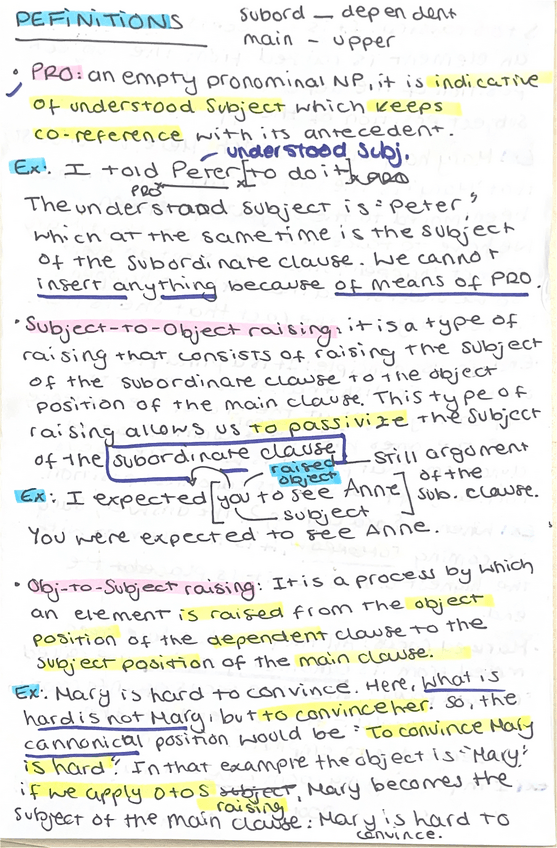 DEFINITIONS
subord — dependent
main - upper
• PRO: an empty pronominal NP, it is indicative
of understood Subject which keeps
co-reference with its antecedent.
understood subj.
Ex: I told Peter [to do it] PRO
PRO
The understood subject is "Peter",
which at the same time is the subject
of the subordinate clause. We cannot
insert anything because of means of PRO.
• Subject-to-Object raising: it is a type of
raising that consists of raising the subject
of the subordinate clause to the object
position of the main clause. This type of
raising allows us to passivize the subject
of the subordinate clause
still argument
of the
sub. clause.
raised
object
Ex: I expected [you to see Anne]
subject
You were expected to see Anne.
• Obj-to-Subject raising: It is a process by which
an element is raised from the object
position of the dependent clause to the
subject position of the main clause.
Ex: Mary is hard to convince. Here, what is
hard is not Mary, but to convince her. So, the
cannonical position would be "To convince Mary
is hard". In that example the object is "Mary",
if we apply O to S subject, Mary becomes the
raising
subject of the main clause: Mary is hard to
convince.